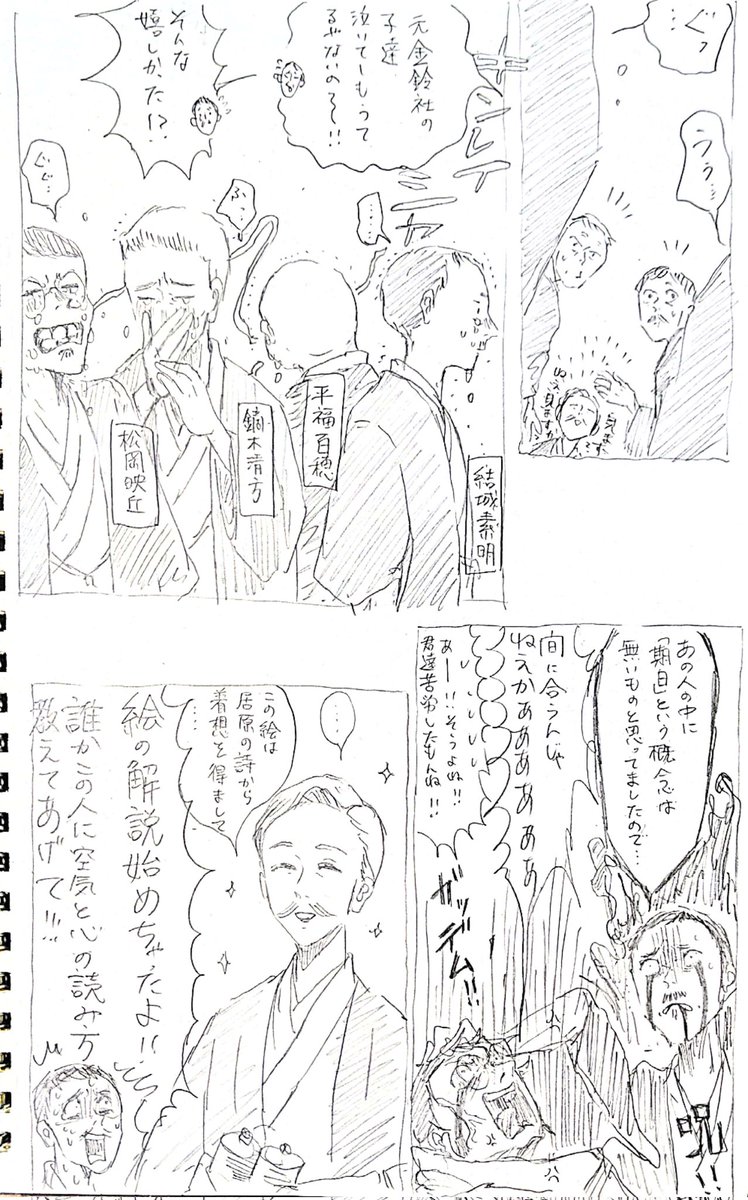 ぐっ
うぅ…
キレイ
元金鈴社の
子達
泣いてしもうて
るやないの〜!!
そんな
嬉しかった!?
ふっ
ぐぐ…
結城素明
平福百穂
鏑木清方
松岡映丘
あの人の中に
「期日」という概念は
無いものと思ってましたので…
間に合うんじゃ
ねえかあああああ
あー!!そうよね!!
君達苦労したもんね!!
ガッデム!!
呪!!
この絵は
屈原の詩から
着想を得まして
絵の解説始めちゃったよ!!
誰かこの人に空気と心の読み方
教えてあげて!!!